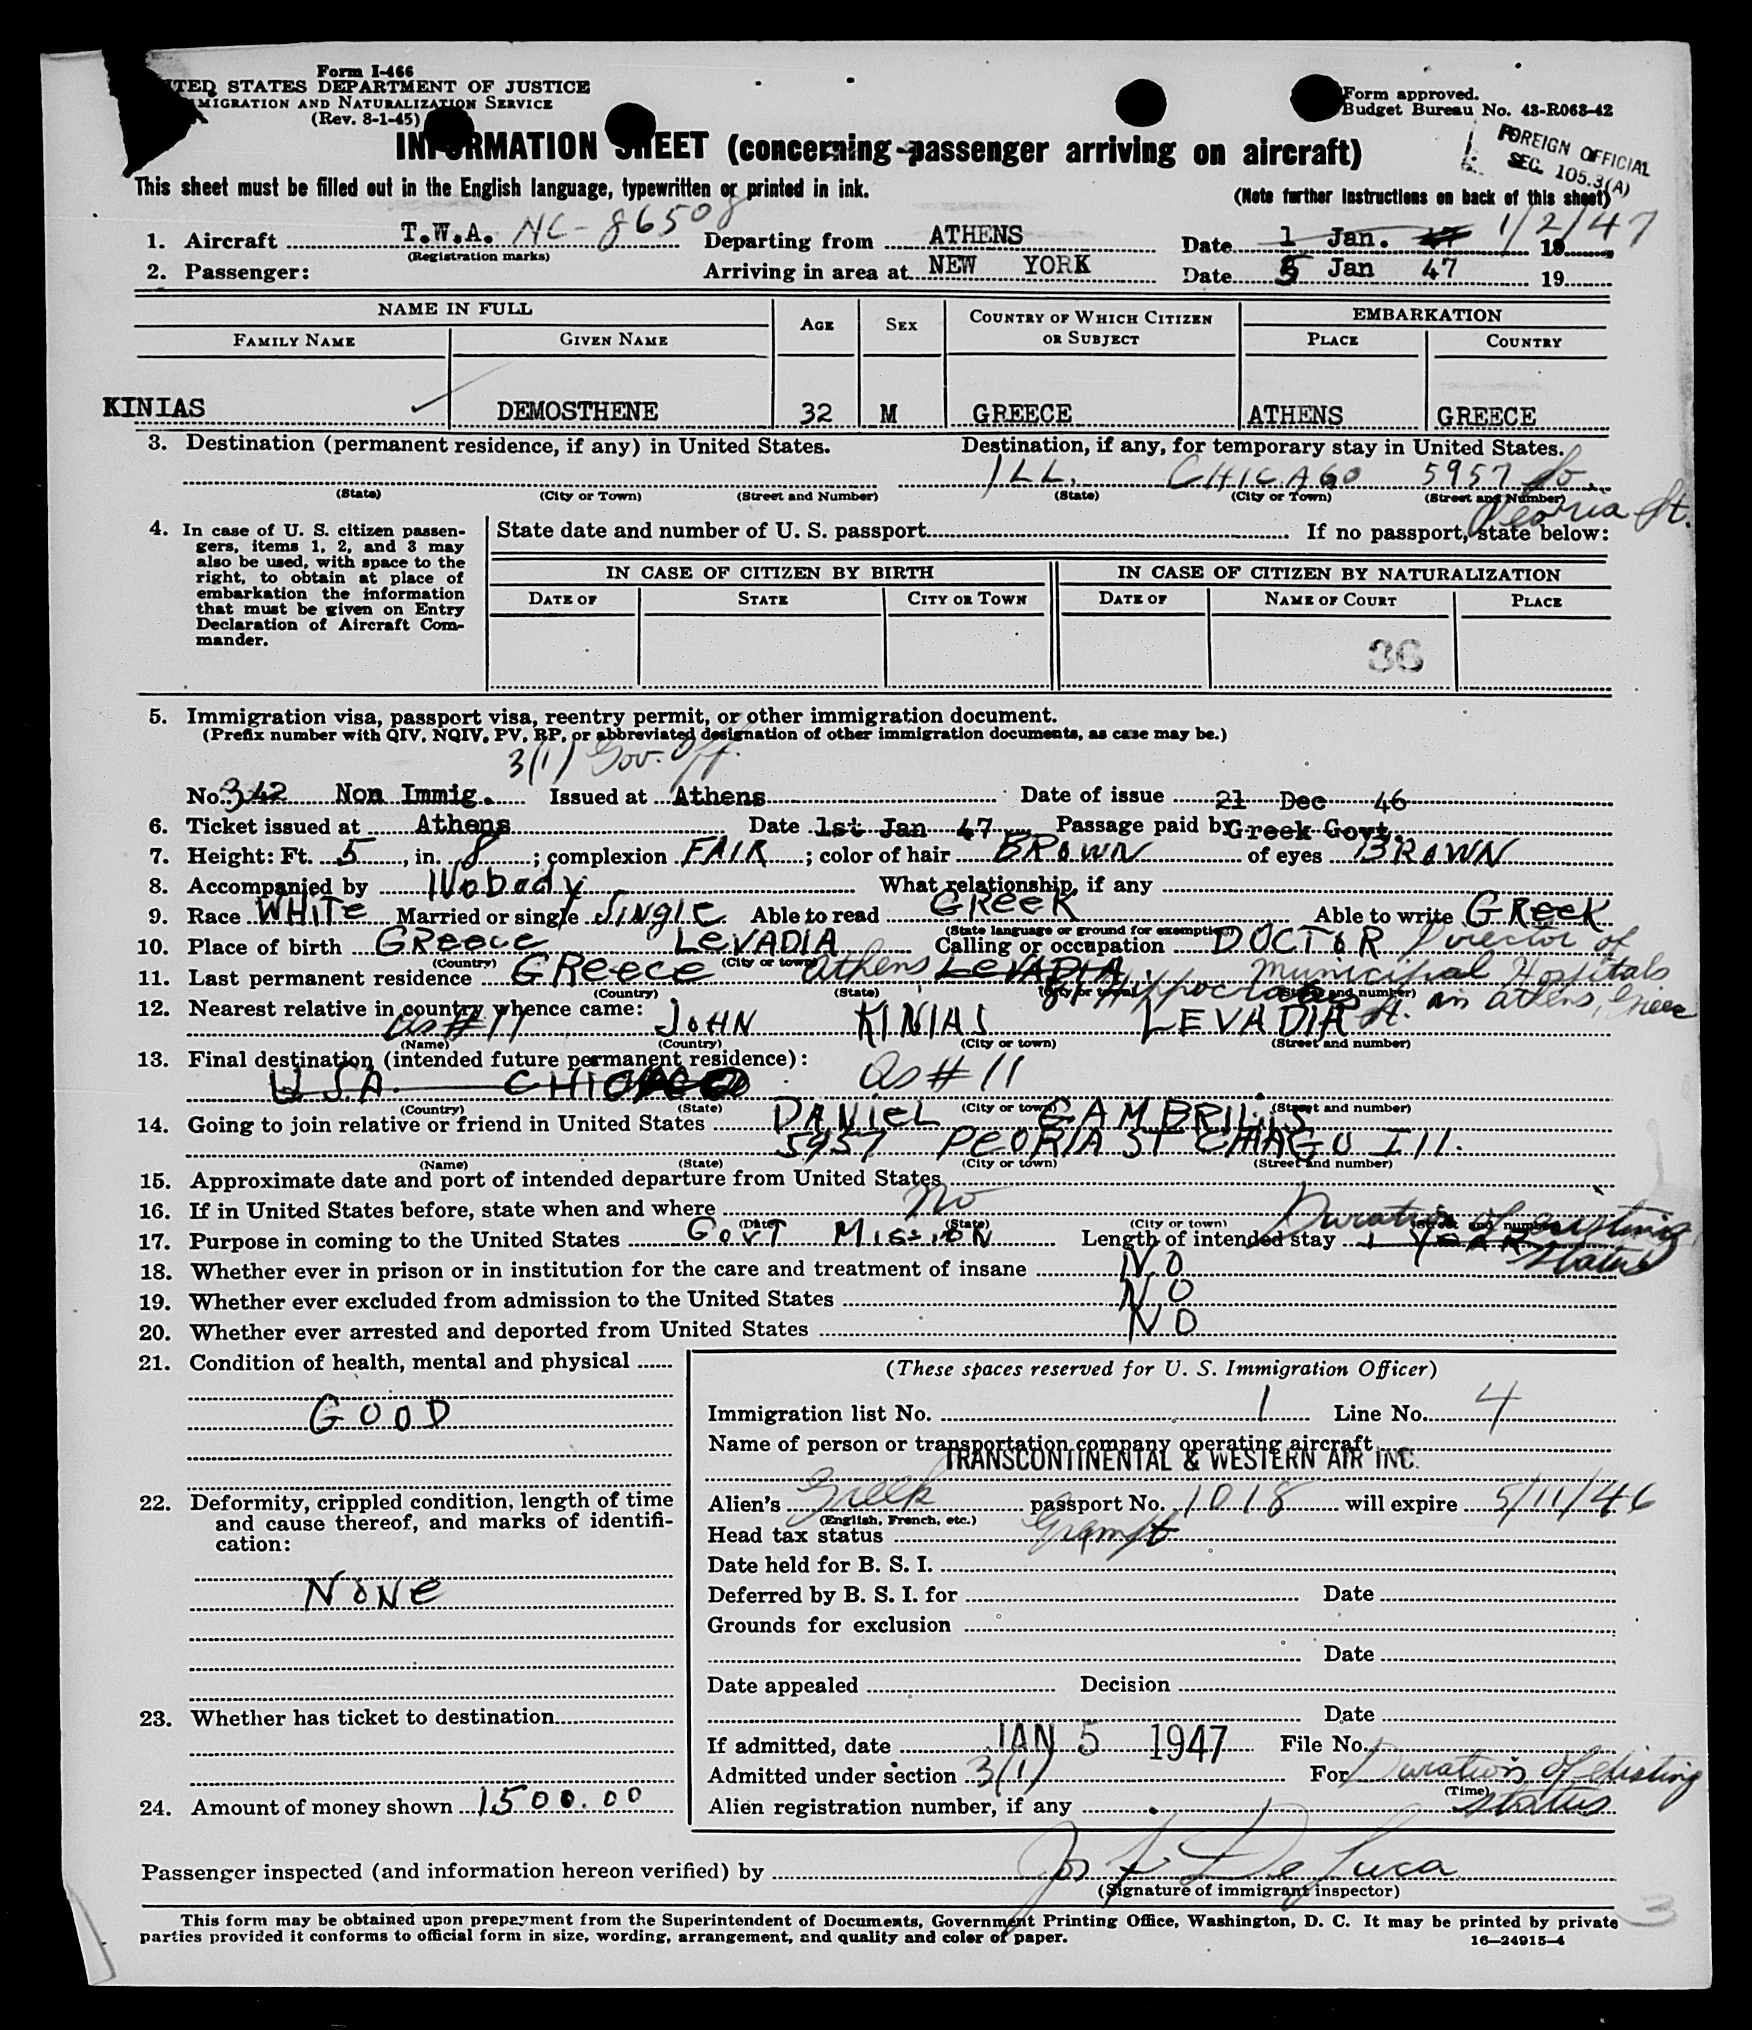 Form I-466
UNITED STATES DEPARTMENT OF JUSTICE
IMMIGRATION AND NATURALIZATION SERVICE
(Rev. 8-1-45)
Form approved.
Budget Bureau No. 43-R068-42
INFORMATION SHEET (concerning passenger arriving on aircraft)
FOREIGN OFFICIAL
SEC. 105.3(A)
This sheet must be filled out in the English language, typewritten or printed in ink.
(Note further instructions on back of this sheet)
1. Aircraft T.W.A. NC-86508 Departing from ATHENS Date 1 Jan. 47 1/2/47 19
(Registration marks)
2. Passenger: Arriving in area at NEW YORK Date 5 Jan 47 19
NAME IN FULL AGE SEX COUNTRY OF WHICH CITIZEN OR SUBJECT EMBARKATION
FAMILY NAME GIVEN NAME PLACE COUNTRY
KINIAS DEMOSTHENE 32 M GREECE ATHENS GREECE
3. Destination (permanent residence, if any) in United States. Destination, if any, for temporary stay in United States.
ILL. CHICAGO 5957 So. Peoria St.
(State) (City or Town) (Street and Number) (State) (City or Town) (Street and Number)
4. In case of U. S. citizen passengers, items 1, 2, and 3 may
also be used, with space to the
right, to obtain at place of
embarkation the information
that must be given on Entry
Declaration of Aircraft Commander.
State date and number of U. S. passport If no passport, state below:
IN CASE OF CITIZEN BY BIRTH IN CASE OF CITIZEN BY NATURALIZATION
DATE OF STATE CITY OR TOWN DATE OF NAME OF COURT PLACE
36
5. Immigration visa, passport visa, reentry permit, or other immigration document.
(Prefix number with QIV, NQIV, PV, RP, or abbreviated designation of other immigration documents, as case may be.)
3(1) Gov. Off.
No. 342 Non Immig. Issued at Athens Date of issue 21 Dec 46
6. Ticket issued at Athens Date 1st Jan 47 Passage paid by Greek Govt.
7. Height: Ft. 5, in. 8; complexion FAIR; color of hair BROWN of eyes BROWN
8. Accompanied by Nobody What relationship, if any
9. Race WHITE Married or single SINGLE Able to read GREEK Able to write GREEK
(State language or ground for exemption)
10. Place of birth GREECE LEVADIA Calling or occupation DOCTOR Director of
(Country) (City or town)
Municipal Hospitals
in Athens, Greece
11. Last permanent residence GREECE Athens LEVADIA
Hippocrates St.
(Country) (State) (City or town) (Street and number)
12. Nearest relative in country whence came:
as #11 JOHN KINIAS LEVADIA
(Name) (Country) (City or town) (Street and number)
13. Final destination (intended future permanent residence):
USA. CHICAGO As #11
(Country) (State) (City or town) (Street and number)
14. Going to join relative or friend in United States DANIEL GAMBRILIS
5957 PEORIA ST CHIAGO Ill.
(Name) (State) (City or town) (Street and number)
15. Approximate date and port of intended departure from United States
16. If in United States before, state when and where No
(Date) (State) (City or town) (Street and number)
17. Purpose in coming to the United States GOVT MISSION Length of intended stay 1 YEAR Duration of existing status
18. Whether ever in prison or in institution for the care and treatment of insane NO
19. Whether ever excluded from admission to the United States NO
20. Whether ever arrested and deported from United States NO
21. Condition of health, mental and physical
GOOD
22. Deformity, crippled condition, length of time
and cause thereof, and marks of identification:
NONE
23. Whether has ticket to destination
24. Amount of money shown 1500.00
(These spaces reserved for U. S. Immigration Officer)
Immigration list No. 1 Line No. 4
Name of person or transportation company operating aircraft
TRANSCONTINENTAL & WESTERN AIR INC.
Alien's Greek passport No. 1018 will expire 5/11/46
(English, French, etc.)
Head tax status Exempt
Date held for B. S. I.
Deferred by B. S. I. for Date
Grounds for exclusion
Date
Date appealed Decision
Date
If admitted, date JAN 5 1947 File No.
Admitted under section 3(1) For Duration of existing status
(Time)
Alien registration number, if any
Passenger inspected (and information hereon verified) by Jos F. De Luca
(Signature of immigrant inspector)
3
This form may be obtained upon prepayment from the Superintendent of Documents, Government Printing Office, Washington, D. C. It may be printed by private
parties provided it conforms to official form in size, wording, arrangement, and quality and color of paper.
16—24915-4